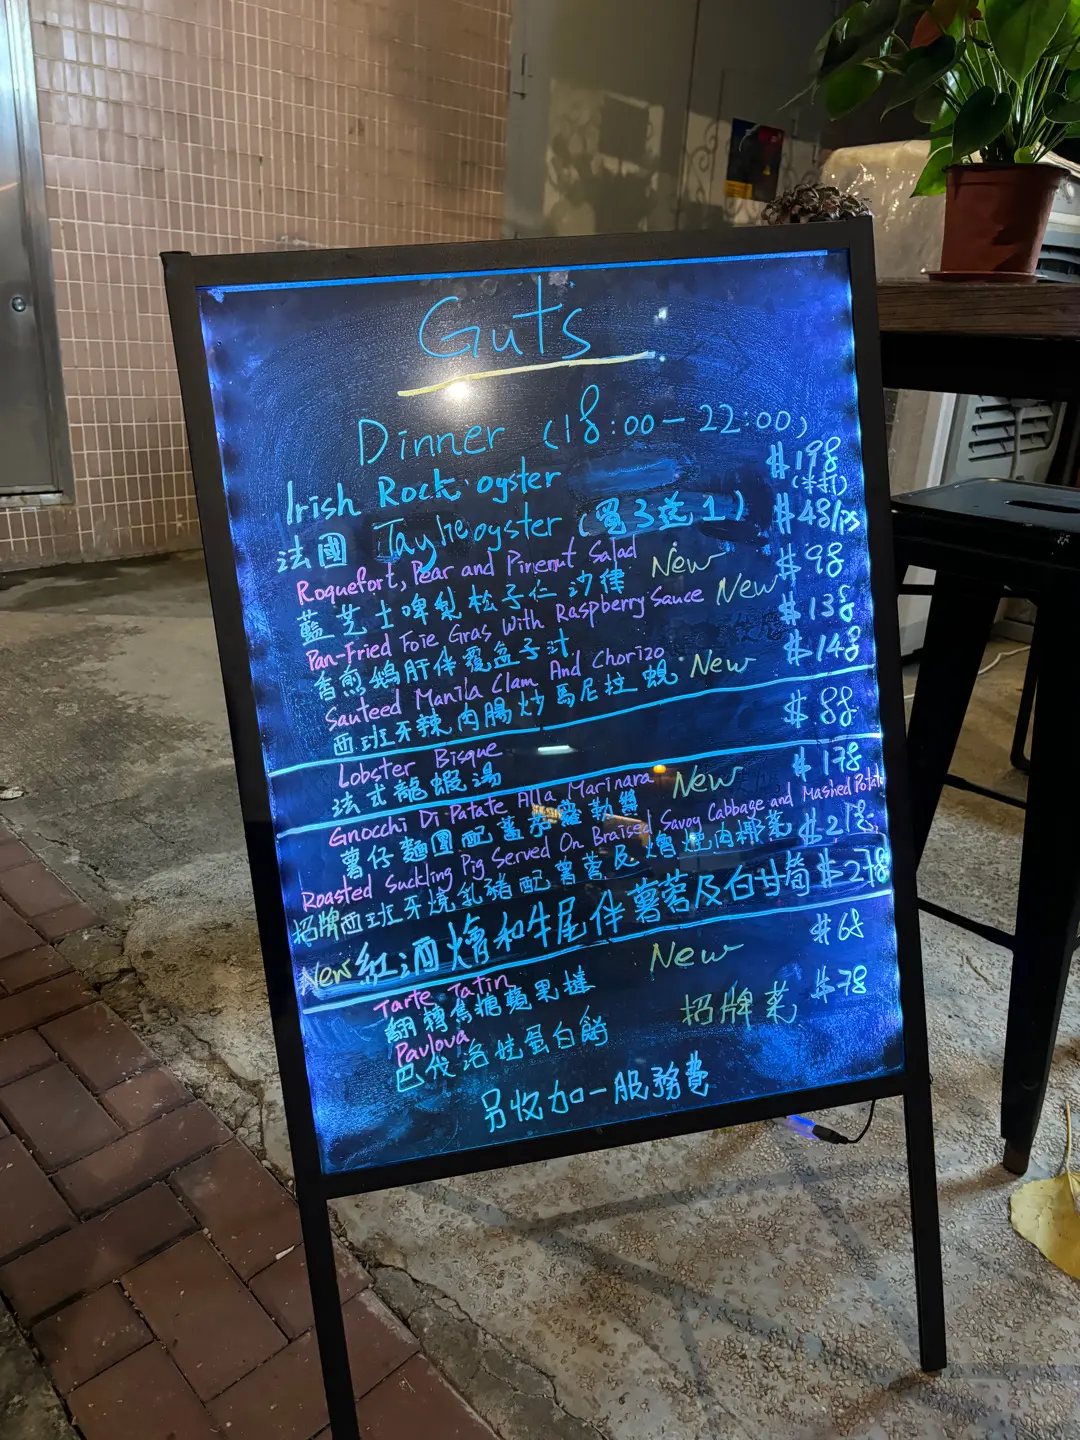 Guts
Dinner (18:00-22:00)
Irish Rock oyster $198
(半打)
法國 oyster (買3送1) $48/ps
Roquefort, Pear and Pinenut Salad New $98
藍芝士啤梨松子仁沙律
Pan-Fried Foie Gras With Raspberry Sauce New $138
香煎鵝肝伴覆盆子汁
Sauteed Manila Clam And Chorizo New $148
西班牙辣肉腸炒馬尼拉蜆
Lobster Bisque $88
法式龍蝦湯
Gnocchi Di Patate Alla Marinara New $178
薯仔麵團配蕃茄羅勒醬
Roasted Suckling Pig Served On Braised Savoy Cabbage and Mashed Potato
招牌西班牙燒乳豬配薯蓉及燴燒肉椰菜 $218
New 紅酒燴和牛尾伴薯蓉及白甘荀 $278
Tarte Tatin New $68
翻轉焦糖蘋果撻
Pavlova 招牌菜 $78
巴伐洛娃蛋白餅
另收加一服務費